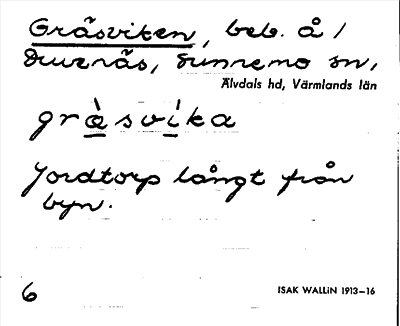 Gräsviken, beb. å /
Duvenäs, Sunnemo sn,
Älvdals hd, Värmlands län
gràsvíka
Jordtorp långt från
byn.
6
ISAK WALLIN 1913–16